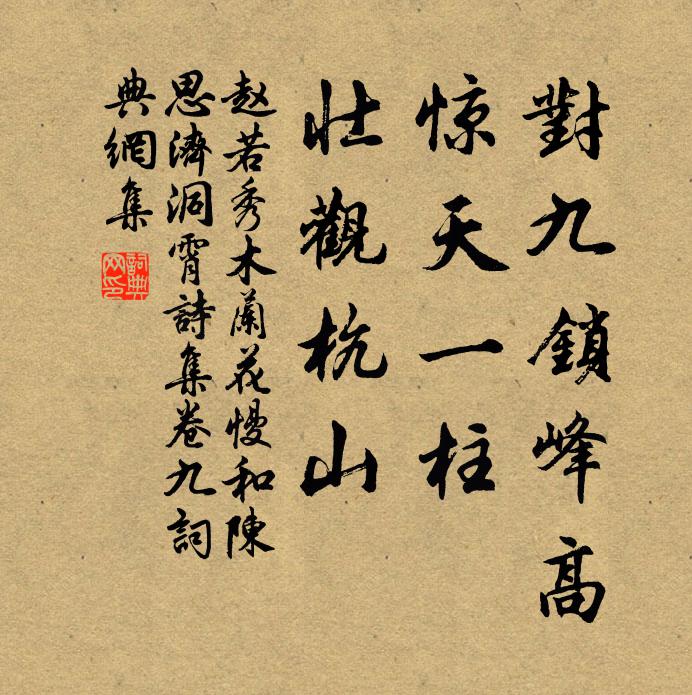 對九鎖峰高
惊天一柱
壮觀杭山
赵若秀木蘭花慢和陳
思濟洞霄詩集卷九詞
典網集
詞典网印